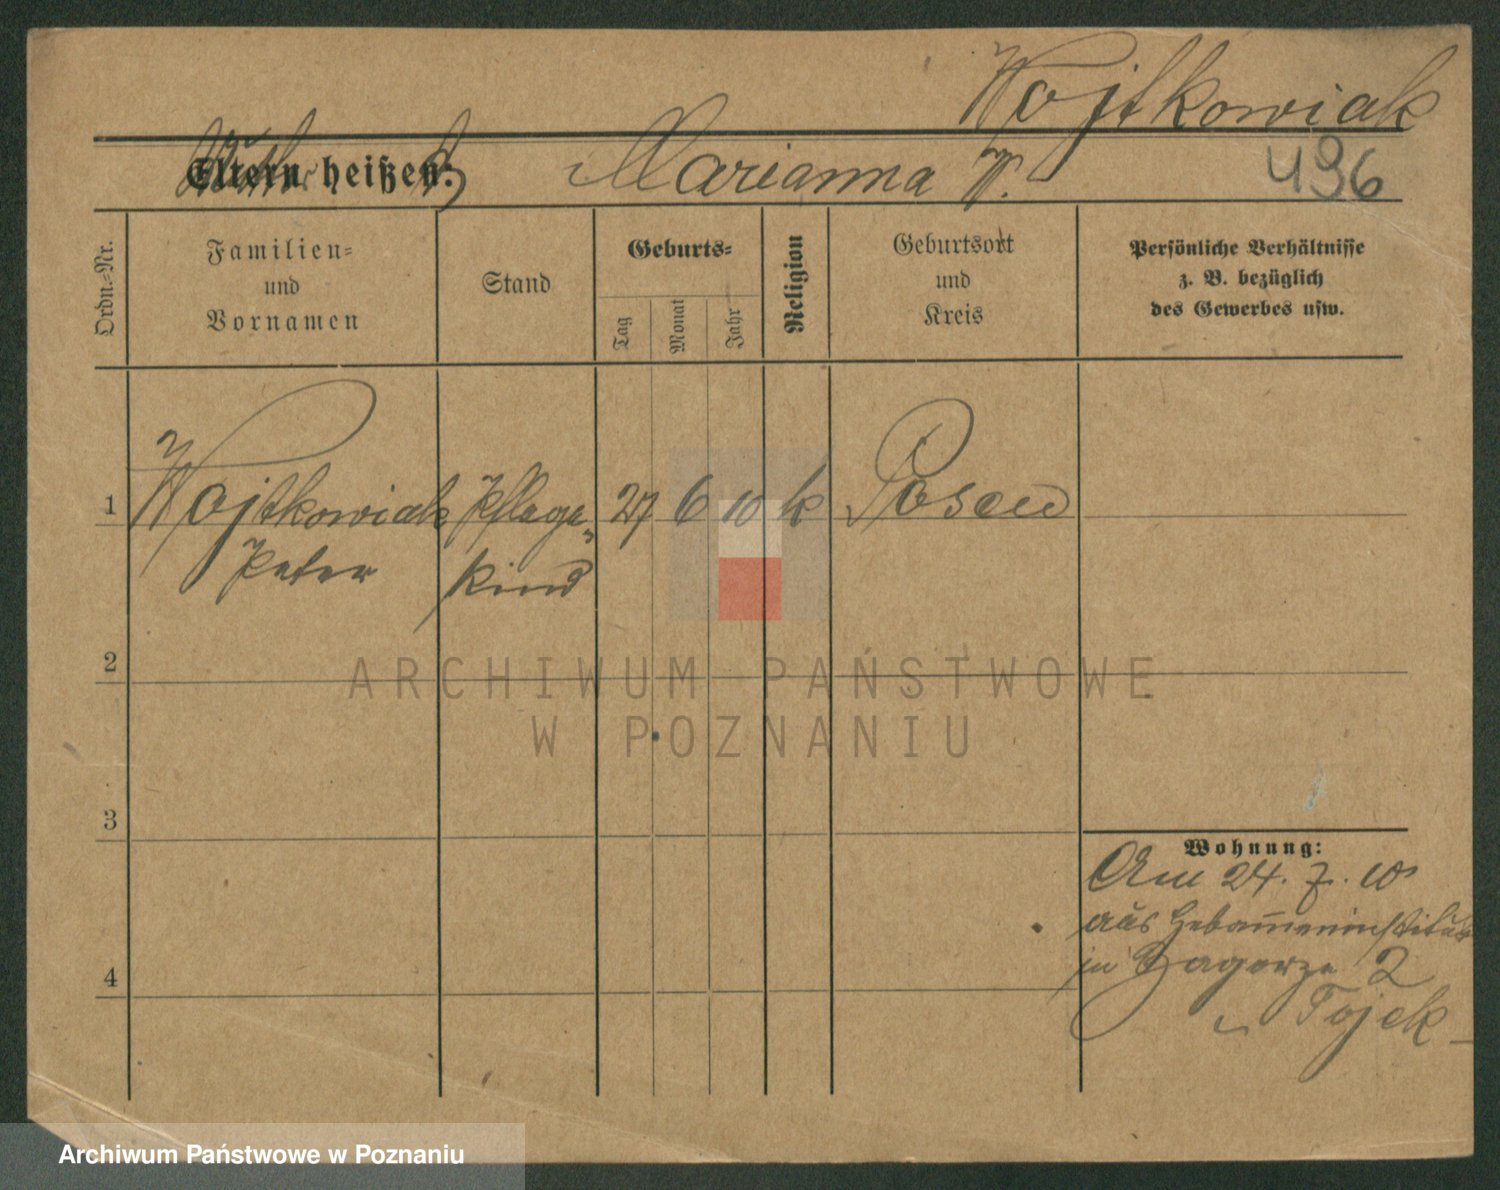 Wojtkowiak
Eltern heißen: Marianna W.
496
Ordn.-Nr.
Familien-
und
Vornamen
Stand
Geburts-
Tag
Monat
Jahr
Religion
Geburtsort
und
Kreis
Persönliche Verhältnisse
z. B. bezüglich
des Gewerbes usw.
1 Wojtkowiak Pflege- 27 6 10 k Posen
Peter kind
2
3
4
Wohnung:
Am 24. 7. 10
aus Hebammeninstitut
in Zagorze 2
Tojek
ARCHIWUM PAŃSTWOWE
W POZNANIU
Archiwum Państwowe w Poznaniu